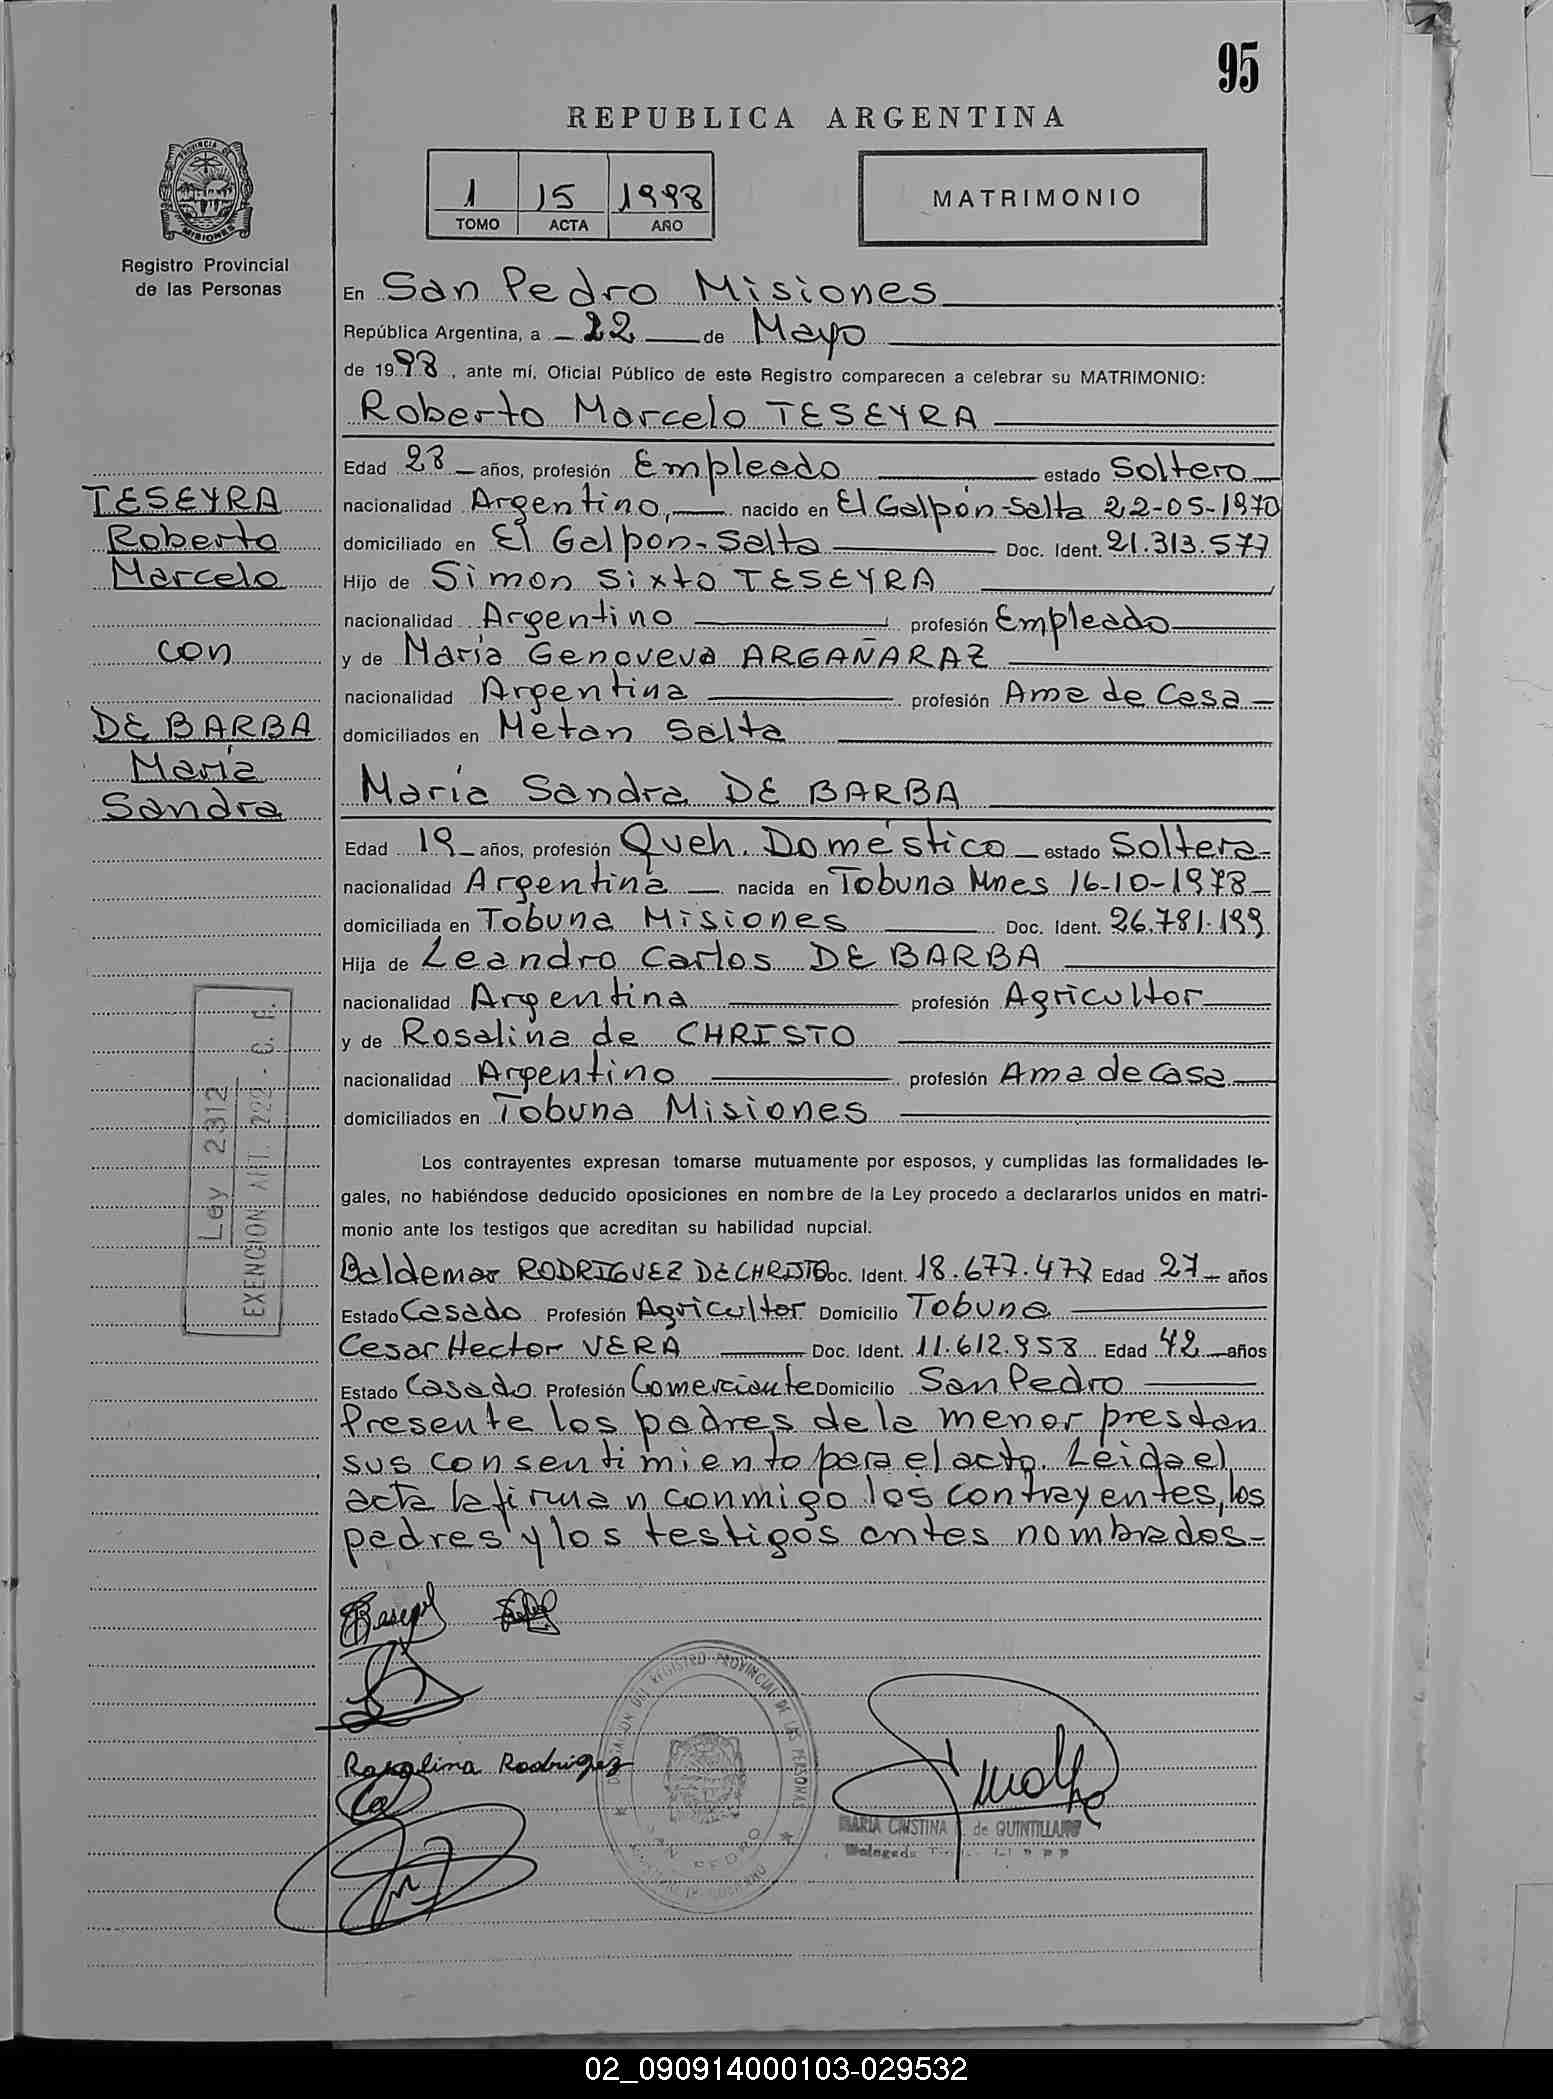 95
REPUBLICA ARGENTINA
1 15 1998
TOMO ACTA AÑO
MATRIMONIO
PROVINCIA DE
MISIONES
Registro Provincial
de las Personas
En San Pedro Misiones
República Argentina, a 22 de Mayo
de 1998, ante mí, Oficial Público de este Registro comparecen a celebrar su MATRIMONIO:
Roberto Marcelo TESEYRA
Edad 28 años, profesión Empleado estado Soltero
nacionalidad Argentino, nacido en El Galpón-Salta 22-05-1970
domiciliado en El Galpon-Salta Doc. Ident. 21.313.577
Hijo de Simon Sixto TESEYRA
nacionalidad Argentino profesión Empleado
y de María Genoveva ARGAÑARAZ
nacionalidad Argentina profesión Ama de Casa
domiciliados en Metan Salta
TESEYRA
Roberto
Marcelo
con
DE BARBA
María
Sandra
María Sandra DE BARBA
Edad 19 años, profesión Queh. Doméstico estado Soltera
nacionalidad Argentina nacida en Tobuna Mnes 16-10-1978
domiciliada en Tobuna Misiones Doc. Ident. 26.781.199
Hija de Leandro Carlos DE BARBA
nacionalidad Argentina profesión Agricultor
y de Rosalina de CHRISTO
nacionalidad Argentino profesión Ama de Casa
domiciliados en Tobuna Misiones
Ley 2312
EXENCION ART. 222 - C. F.
Los contrayentes expresan tomarse mutuamente por esposos, y cumplidas las formalidades le-
gales, no habiéndose deducido oposiciones en nombre de la Ley procedo a declararlos unidos en matri-
monio ante los testigos que acreditan su habilidad nupcial.
Baldemar RODRIGUEZ DE CHRISTO Doc. Ident. 18.677.477 Edad 27 años
Estado Casado Profesión Agricultor Domicilio Tobuna
Cesar Hector VERA Doc. Ident. 11.612.958 Edad 42 años
Estado Casado Profesión Comerciante Domicilio San Pedro
Presente los padres de la menor prestan
sus consentimiento para el acto. Leida el
acta la firman conmigo los contrayentes, los
padres y los testigos antes nombrados-
Rosalina Rodriguez
DEL REGISTRO PROVINCIAL DE LAS PERSONAS
SAN PEDRO
MARIA CRISTINA de QUINTILLANO
02_090914000103-029532